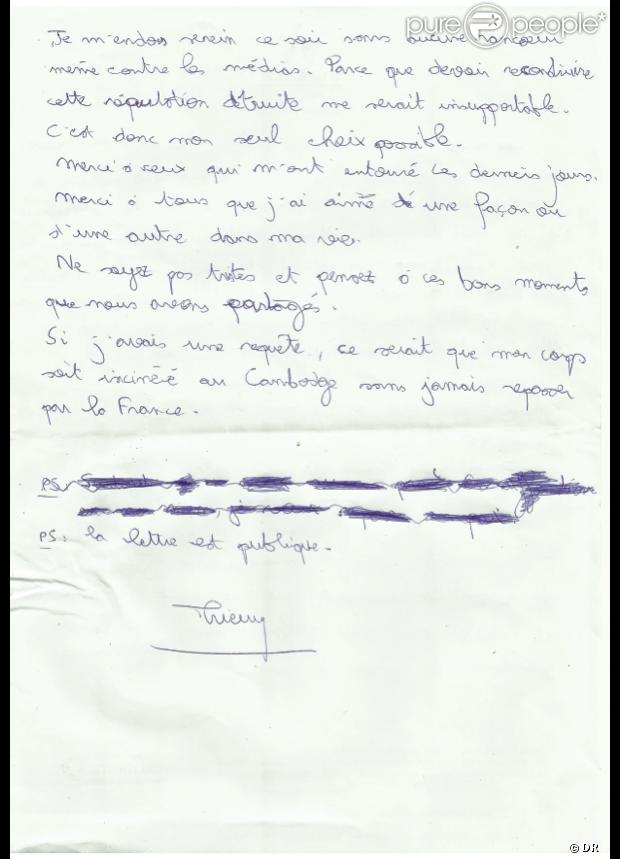 pure people*
Je m'endors serein ce soir sans aucune rancoeur
même contre les médias. Parce que devoir reconstruire
cette réputation détruite me serait insupportable.
C'est donc mon seul choix possible.
Merci à ceux qui m'ont entouré ces derniers jours.
Merci à tous que j'ai aimé d'une façon ou
d'une autre dans ma vie.
Ne soyez pas tristes et pensez à ces bons moments
que nous avons partagés.
Si j'avais une requête, ce serait que mon corps
soit incinéré au Cambodge sans jamais repasser
par la France.
PS:
PS: la lettre est publique.
Thierry
© DR